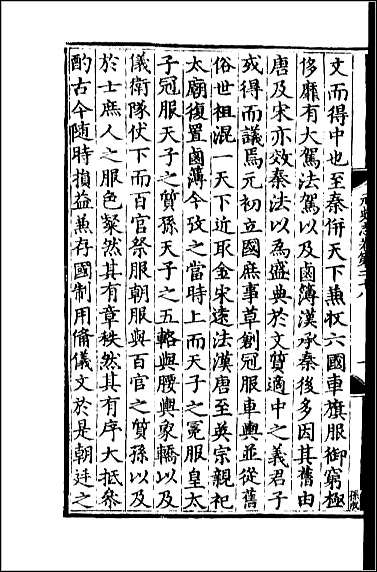 文而得中也至秦倂天下兼収六國車旗服御窮極
侈靡有大駕法駕以及鹵簿漢承秦後多因其舊由
唐及宋亦效秦法以爲盛典於文質適中之義君子
或得而議焉元初立國庶事草創冠服車輿並從舊
俗世祖混一天下近取金宋遠法漢唐至英宗親祀
太廟復置鹵薄今攷之當時上而天子之冕服皇太
子冠服天子之質孫天子之五輅與腰輿象轎以及
儀衛隊仗下而百官祭服朝服與百官之質孫以及
於士庶人之服色粲然其有章秩然其有序大抵叅
酌古今随時損益兼存國制用俻儀文於是朝廷之